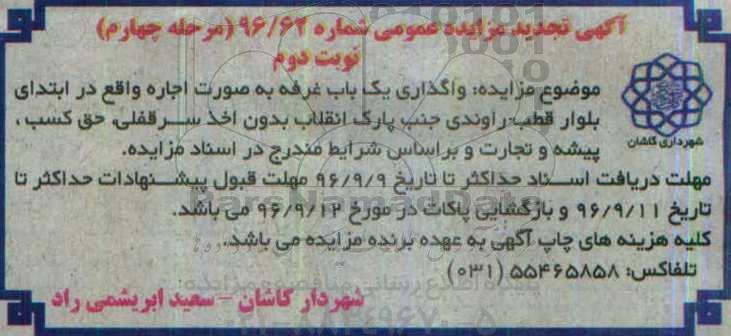 آگهی تجدید مزایده عمومی شماره ۹۶/۶۲ (مرحله چهارم)
نوبت دوم
موضوع مزایده: واگذاری یک باب غرفه به صورت اجاره واقع در ابتدای
بلوار قطب راوندی جنب پارک انقلاب بدون اخذ سرقفلی، حق کسب،
پیشه و تجارت و براساس شرایط مندرج در اسناد مزایده.
شهرداری کاشان
مهلت دریافت اسناد حداکثر تا تاریخ ۹۶/۹/۹ مهلت قبول پیشنهادات حداکثر تا
تاریخ ۹۶/۹/۱۱ و بازگشایی پاکات در مورخ ۹۶/۹/۱۲ می باشد.
کلیه هزینه های چاپ آگهی به عهده برنده مزایده می باشد.
تلفاکس: ۵۵۴۶۵۸۵۸ (۰۳۱)
شهردار کاشان - سعید ابریشمی راد
ParsNamadData